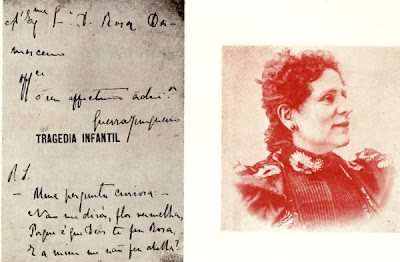 A' Ex.ma Sr.a D. Rosa Da-
masceno
off.ce
o seu affectuoso
Guerra Junqueiro
TRAGEDIA INFANTIL
R S.
— Uma pergunta curiosa: —
— Não me dirás, flor vermelha,
Porque é que Deus te fez Rosa,
E a mim me não fez abelha?